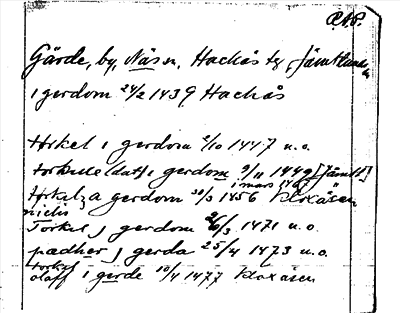 P.N.P.
Gärde, by, Näs sn, Hackås tg, Jämtland
i gerdom 24/2 1439 Hackås
torkel i gerdom 2/10 1447 u.o.
torkille (dat) i gerdom 9/11 1449 [Jämtl]
i mars 1467
torkel, a gerdom 30/3 1456 Kloxåsen
nielis
Torkel j gerdom /3 1471 u.o.
pædher j gerda 25/4 1473 u.o.
torkel
olaff i gerde 10/4 1477 Kloxåsen